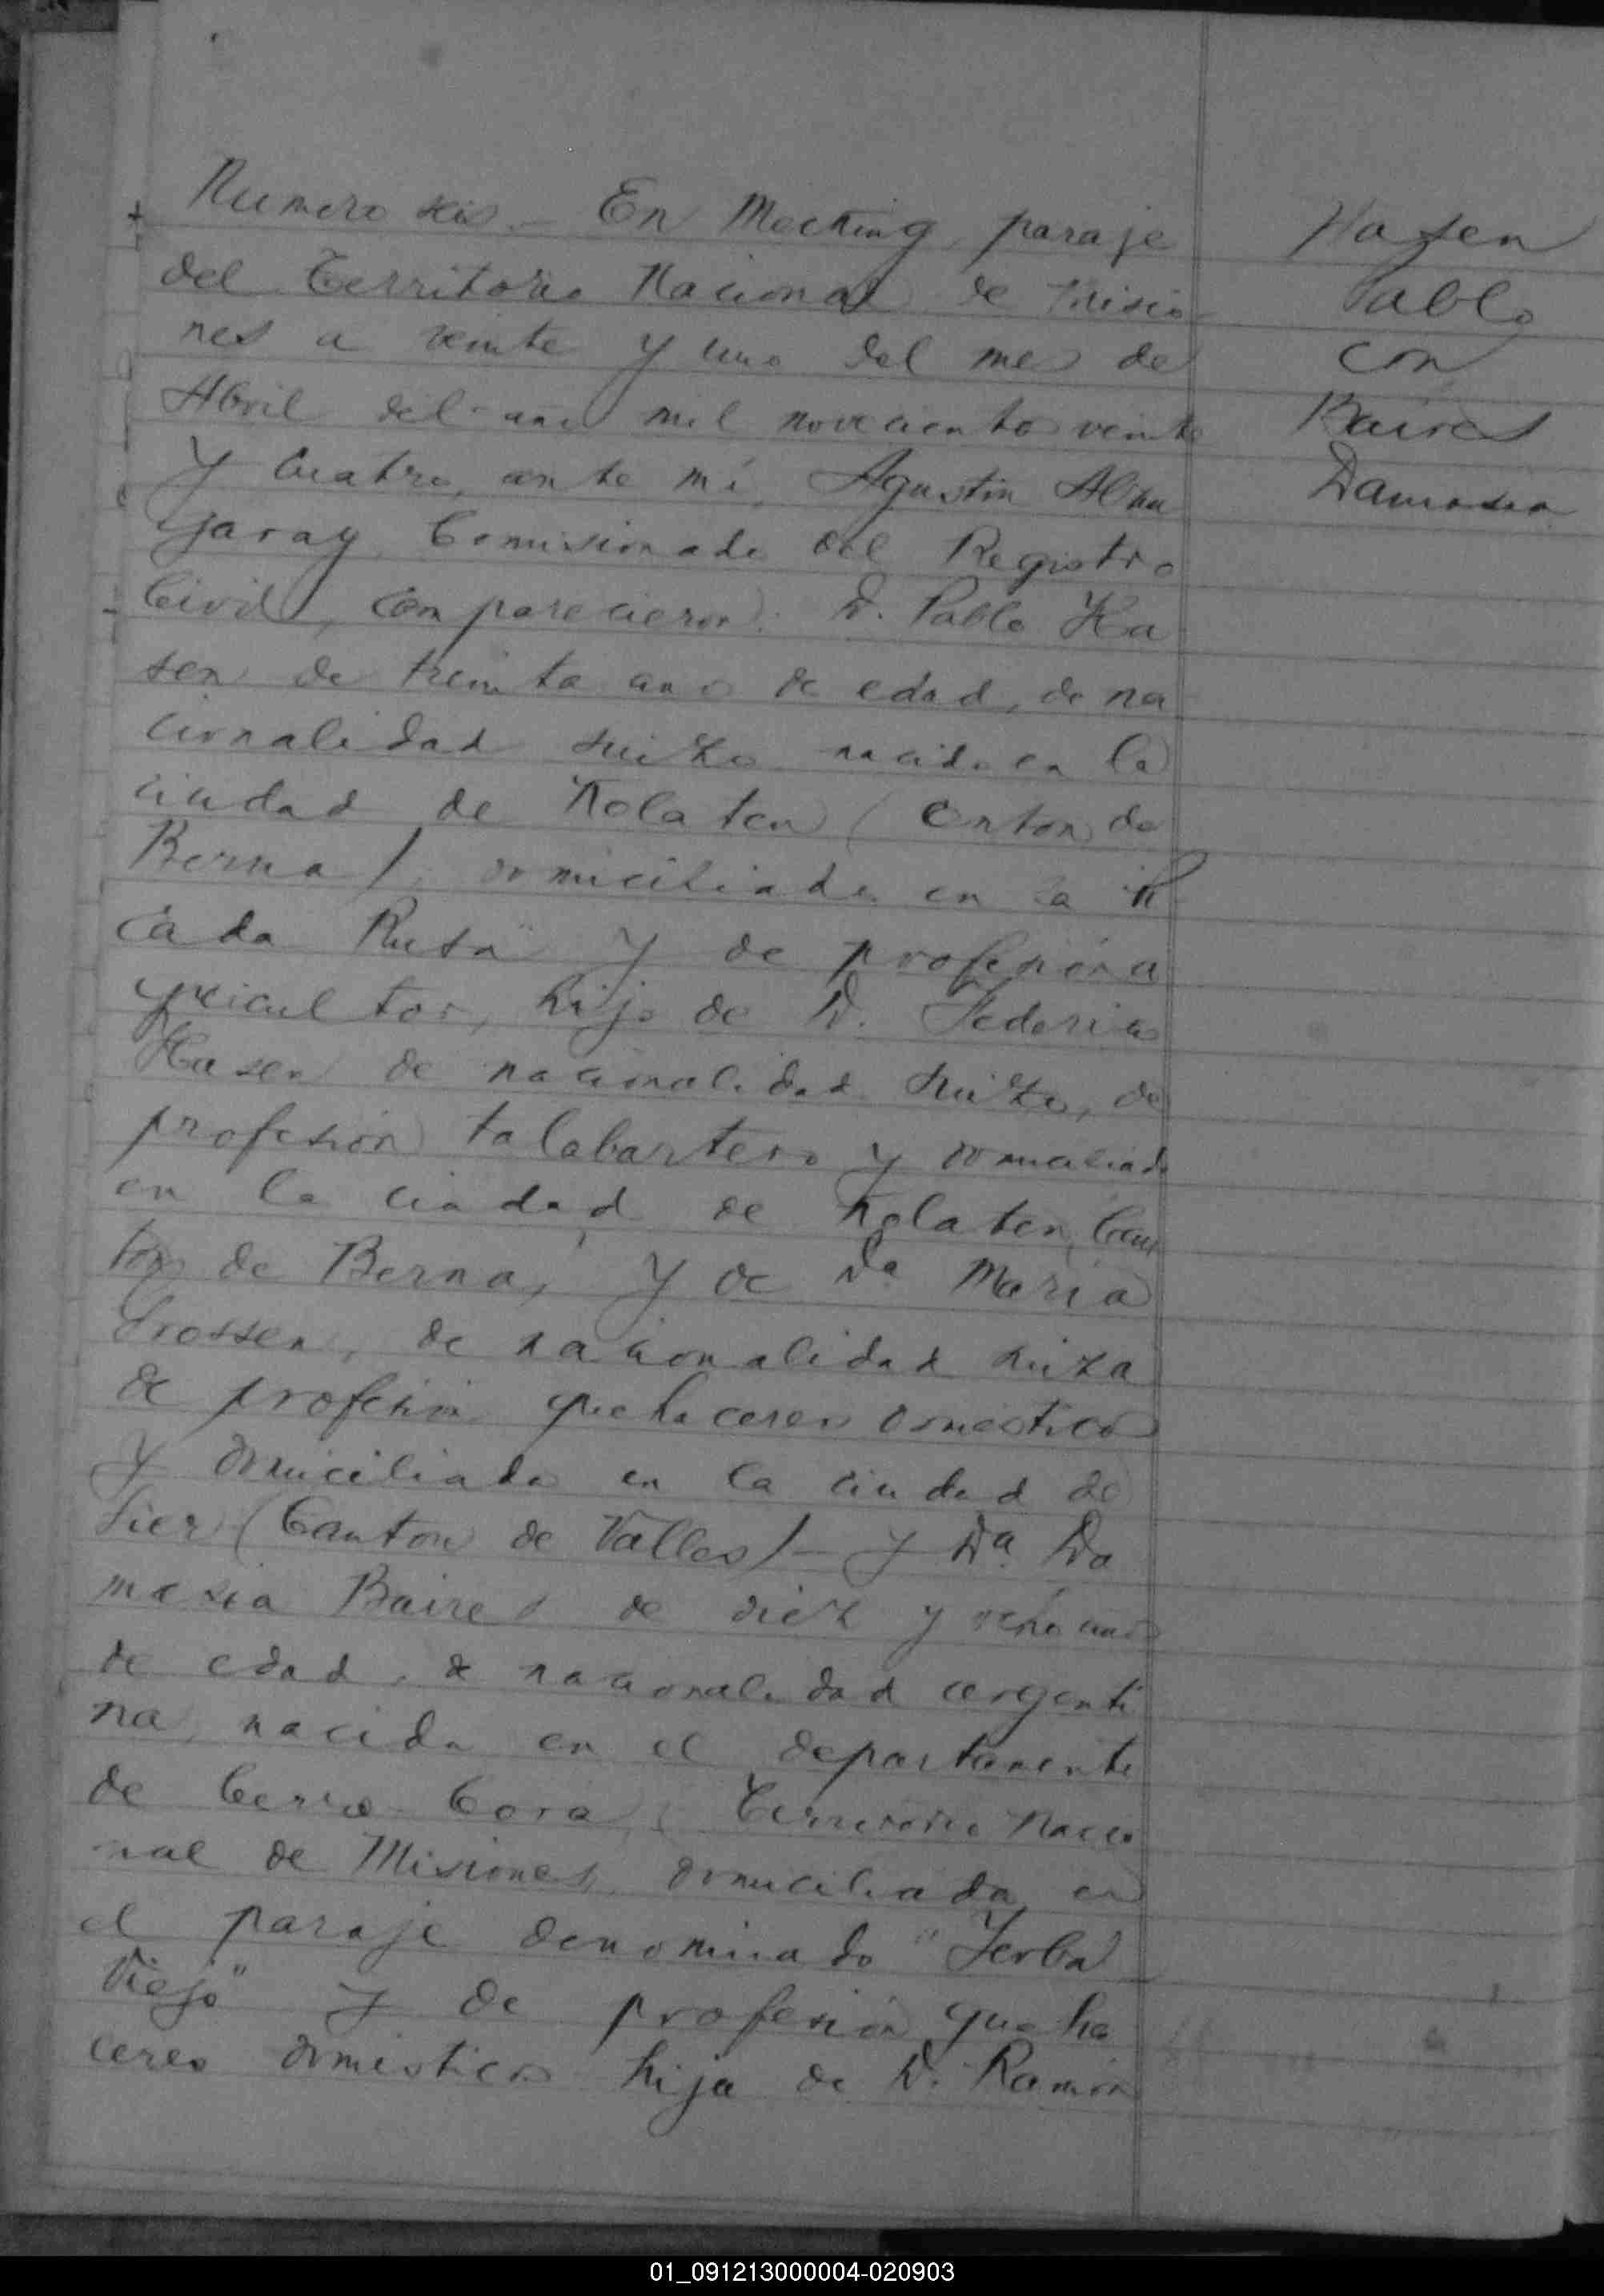 Numero seis.- En Mecking, paraje
del Territorio Nacional de Misio
nes a veinte y uno del mes de
Abril del año mil novecientos veinte
y cuatro, ante mí, Agustin
Garay Comisionado del Registro
Civil, comparecieron: D. Pablo Ha
sen de treinta anos de edad, de na
cionalidad suizo nacido en la
ciudad de Kolaten (Canton de
Berna), domiciliado en la "Pi
cada Rusa" y de profesión a
gricultor, hijo de D. Federico
Hasen de nacionalidad suizo, de
profesión talabartero y domiciliado
en la ciudad de Kolaten, Can
ton de Berna, y de Da Maria
Grossen, de nacionalidad suiza
de profesion quehaceres domesticos
y domiciliada en la ciudad de
Sier (Canton de Valles) - y Da. Da
masia Baires de diez y ocho anos
de edad, de nacionalidad argenti
na, nacida en el departamento
de Cerro-Cora, Territorio Nacio
nal de Misiones, domiciliada en
el paraje denominado "Yerbal
Viejo" y de profesión queha
ceres domesticos hija de D. Ramón
Hasen
Pablo
con
Baires
Damasia
01_091213000004-020903